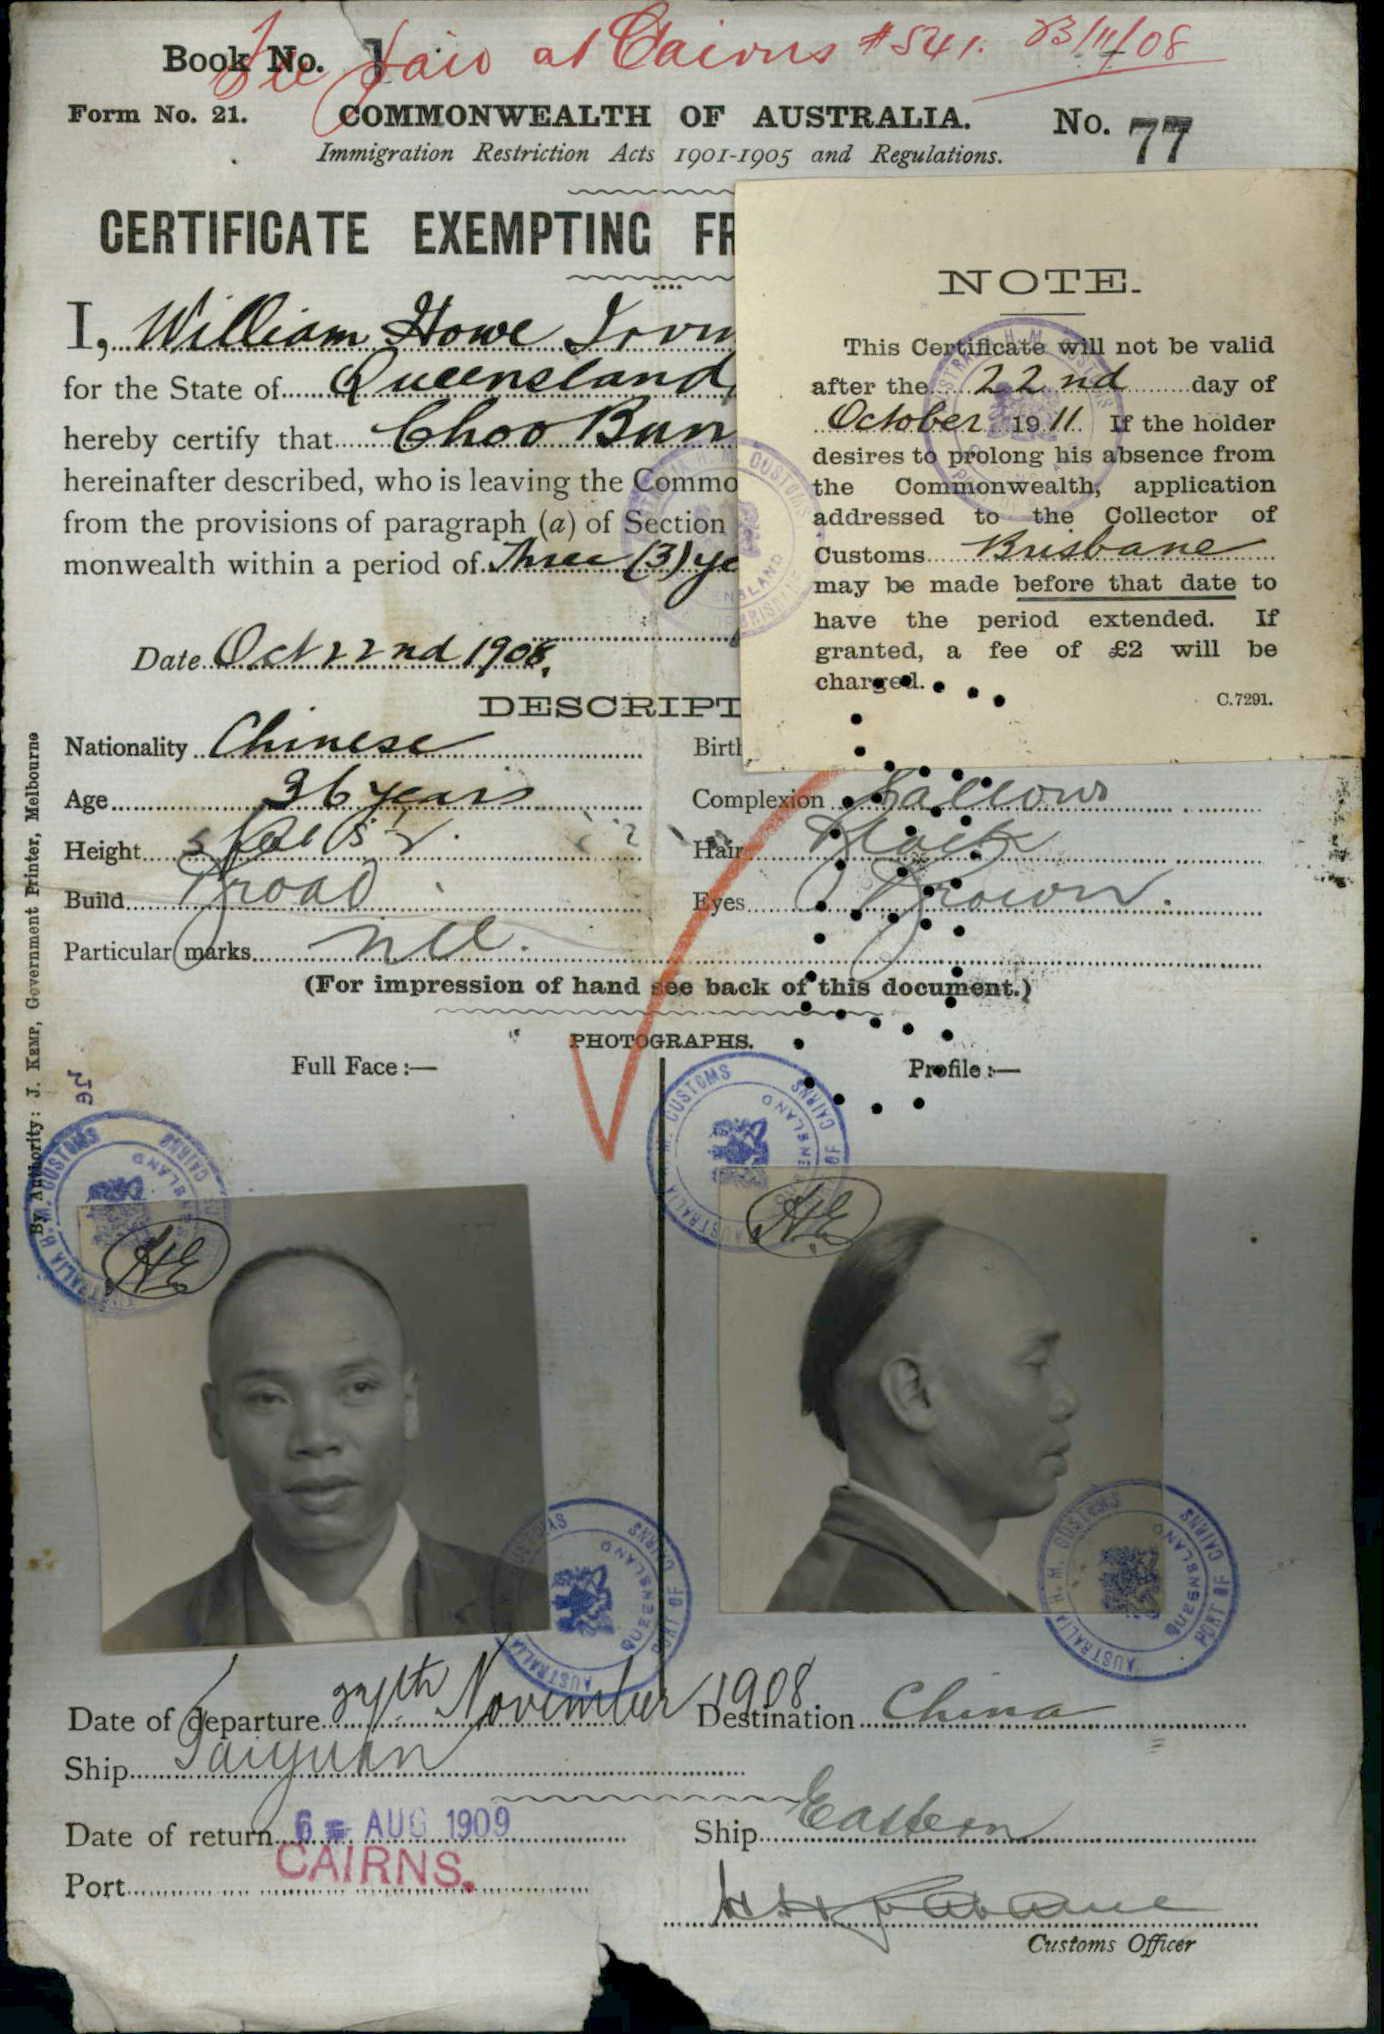 Book No. 1
Fee paid at Cairns #541. 23/11/08
Form No. 21. COMMONWEALTH OF AUSTRALIA. No. 77
Immigration Restriction Acts 1901-1905 and Regulations.
CERTIFICATE EXEMPTING FR
I, William Howe Irvin
for the State of Queensland
hereby certify that Choo Bun
hereinafter described, who is leaving the Commo
from the provisions of paragraph (a) of Section
monwealth within a period of Three (3) ye
Date Oct 22nd 1908.
NOTE.
This Certificate will not be valid
after the 22nd day of
October 1911. If the holder
desires to prolong his absence from
the Commonwealth, application
addressed to the Collector of
Customs Brisbane
may be made before that date to
have the period extended. If
granted, a fee of £2 will be
charged.
C.7291.
DESCRIPT
Nationality Chinese
Birth
Age 36 years
Complexion Sallow
Height 5 feet
Hair Black
Build Broad
Eyes Brown.
Particular marks nil.
(For impression of hand see back of this document.)
PHOTOGRAPHS.
Full Face:— Profile:—
By Authority: J. KEMP, Government Printer, Melbourne
AUSTRALIA H. M. CUSTOMS
PORT OF CAIRNS
QUEENSLAND
HE
AUSTRALIA H. M. CUSTOMS
PORT OF CAIRNS
QUEENSLAND
HE
AUSTRALIA H. M. CUSTOMS
PORT OF CAIRNS
QUEENSLAND
AUSTRALIA H. M. CUSTOMS
PORT OF CAIRNS
QUEENSLAND
Date of departure 24th November 1908. Destination China
Ship Taiyuan
Date of return 6 AUG 1909 Ship Eastern
Port CAIRNS.
Customs Officer